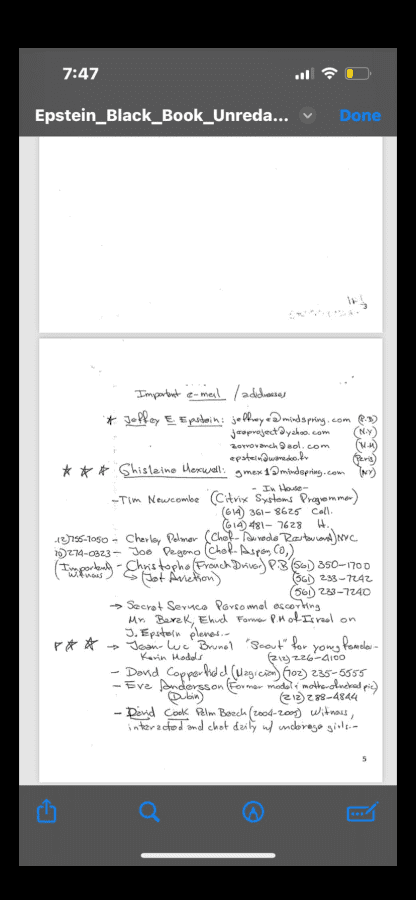 7:47
Epstein_Black_Book_Unreda... Done
Important e-mail / addresses
Jeffrey E Epstein: jeffreye@mindspring.com (P.B)
jeeproject@yahoo.com (N.Y)
zorroranch@aol.com (N.M)
epstein@wanadoo.fr (Paris)
Ghislaine Maxwell: gmex1@mindspring.com (NY)
- In House -
-Tim Newcombe (Citrix Systems Programmer)
(614) 361-8625 Cell.
(614) 481-7628 H.
12)755-7050 - Charley Palmer (Chef- Aureole Restaurant) NYC
70)274-0323 - Joe (Chef-Aspen, CO,)
(Important Witness) - Christophe (French Driver) P.B (561) 350-1700
(Jet Aviation) (561) 233-7242
(561) 233-7240
→ Secret Service Personnel escorting
Mr. Barak, Ehud Former P.M of Israel on
J. Epstein planes.-
→ Jean-Luc Brunel "Scout" for young females-
Karin Models (212) 226-4100
- David Copperfield (Magician) (702) 235-5555
- Eva Andersson (Former model & mother of naked pic)
(Dubin) (212) 288-4844
- David Cook Palm Beach (2004-2005) Witness,
interacted and chat daily w/ underage girls.-
5